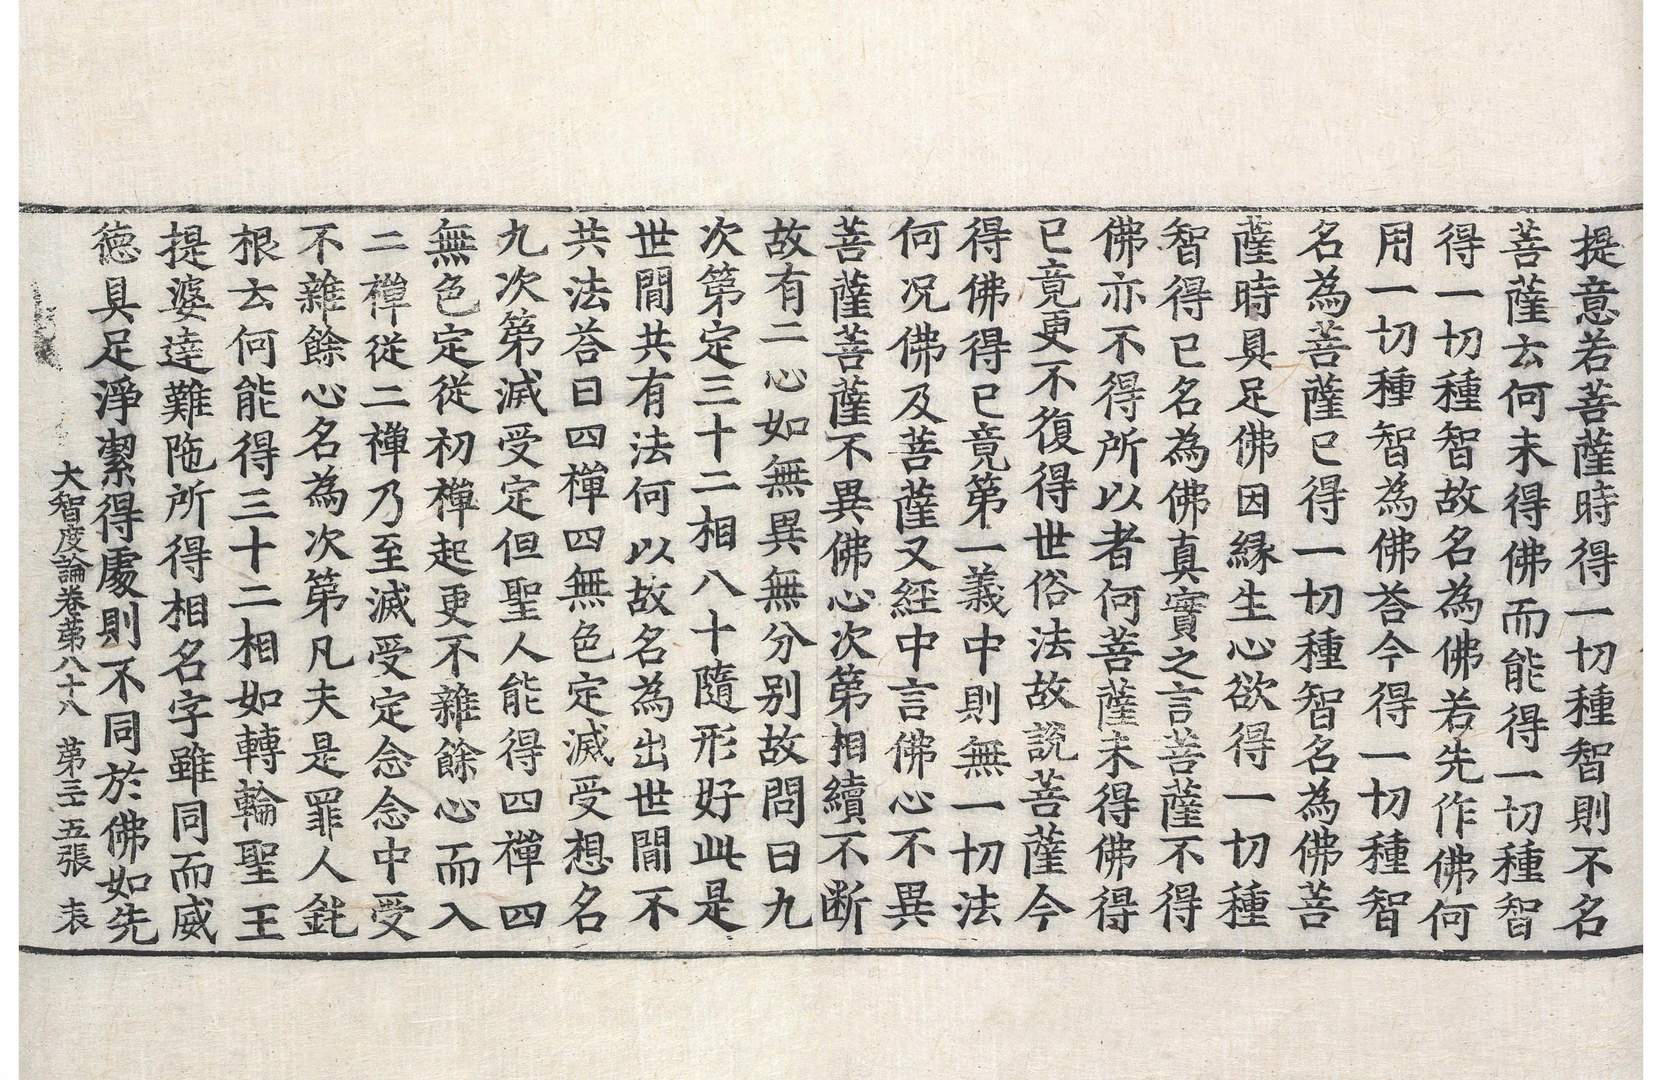 提意若菩薩時得一切種智則不名
菩薩云何未得佛而能得一切種智
得一切種智故名為佛若先作佛何
用一切種智為佛荅今得一切種智
名為菩薩已得一切種智名為佛菩
薩時具足佛因緣生心欲得一切種
智得已名為佛真實之言菩薩不得
佛亦不得所以者何菩薩未得佛得
已竟更不復得世俗法故說菩薩今
得佛得已竟第一義中則無一切法
何況佛及菩薩又經中言佛心不異
菩薩菩薩不異佛心次第相續不断
故有二心如無異無分別故問曰九
次第定三十二相八十隨形好此是
世間共有法何以故名為出世間不
共法荅曰四禪四無色定滅受想名
九次第滅受定但聖人能得四禪四
無色定從初禪起更不雜餘心而入
二禪從二禪乃至滅受定念念中受
不雜餘心名為次第凡夫是罪人鈍
根云何能得三十二相如轉輪聖王
提婆達難陁所得相名字雖同而威
德具足淨潔得處則不同於佛如先
大智度論卷苐八十八 第三五張 表